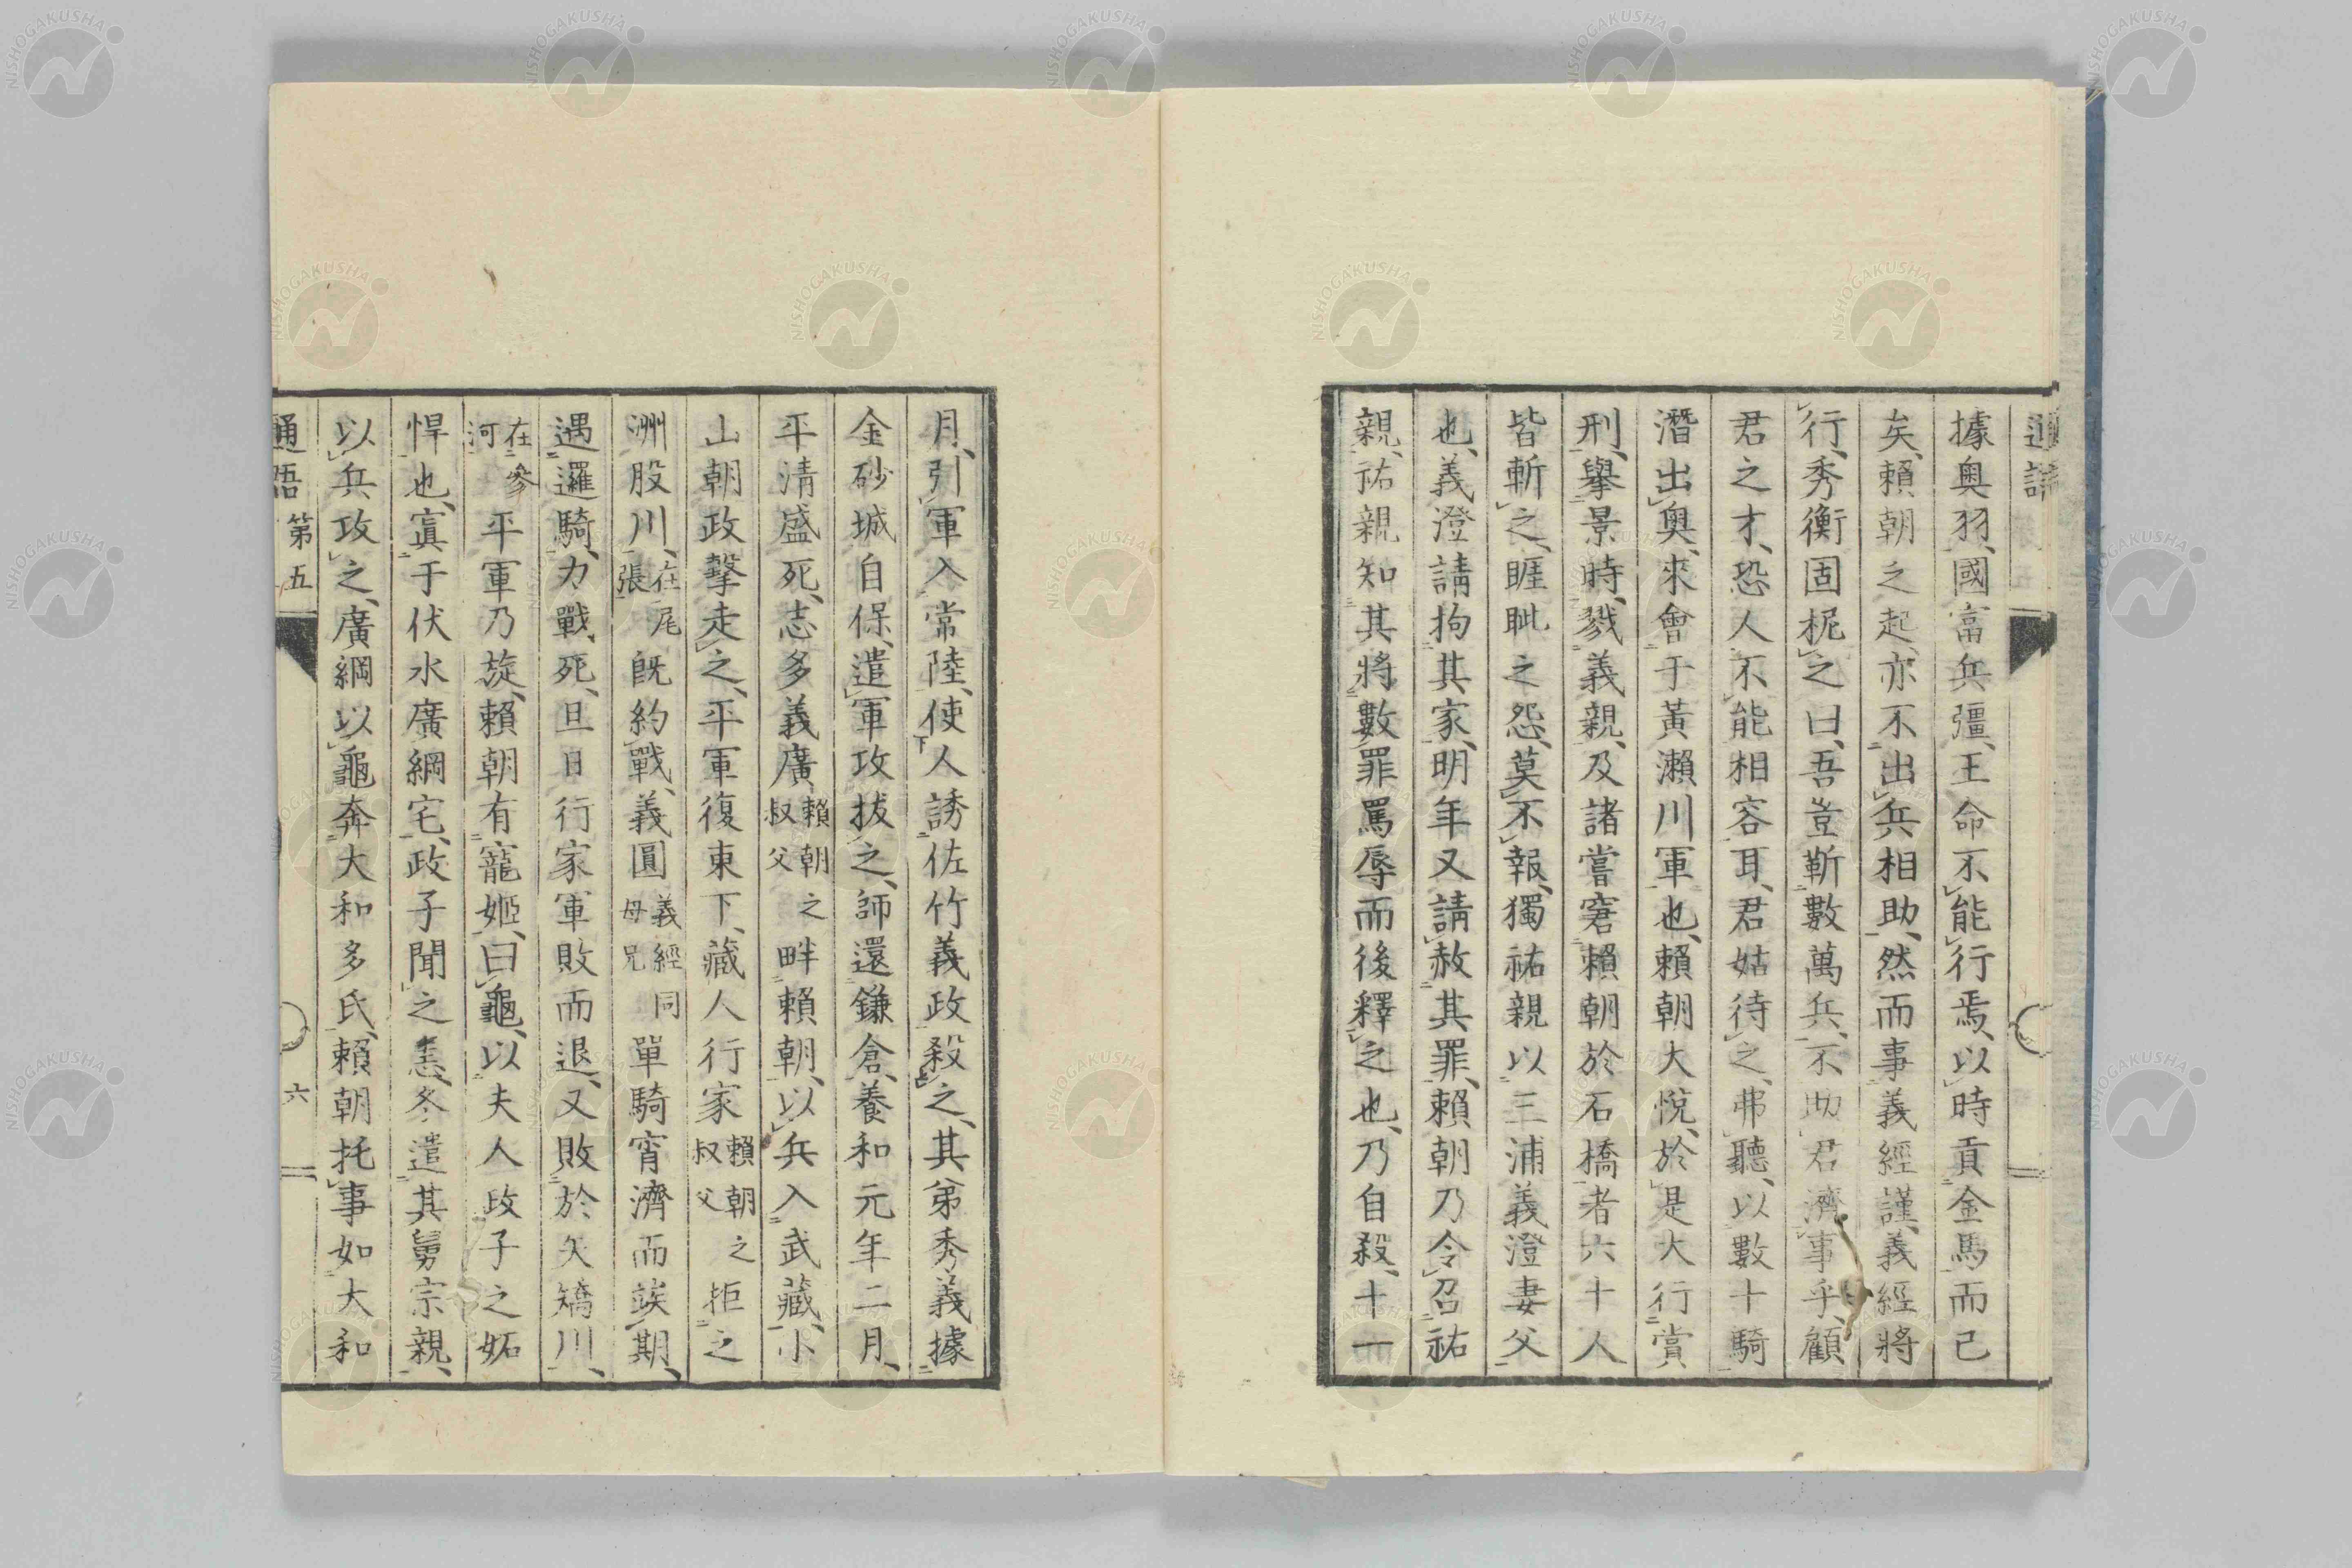 通語
據奥羽、國富兵彊、王命不能行焉、以時貢金馬而已
矣、賴朝之起、亦不出兵相助、然而事義經謹、義經將
行、秀衡固柅之曰、吾豈靳數萬兵、不助君濟事乎、顧
君之才、恐人不能相容耳、君姑待之、弗聽、以數十騎
潛出奥、來會于黃瀨川軍也、賴朝大悅、於是大行賞
刑、擧景時、戮義親、及諸嘗窘賴朝於石橋者六十人
皆斬之、睚眦之怨、莫不報、獨祐親以三浦義澄妻父
也、義澄請拘其家、明年又請赦其罪、賴朝乃令召祐
親、祐親知其將數罪罵辱而後釋之也、乃自殺、十一
月、引軍入常陸、使人誘佐竹義政殺之、其弟秀義據
金砂城自保、遣軍攻拔之、師還鎌倉、養和元年二月、
平清盛死、志多義廣賴朝之叔父畔賴朝、以兵入武藏、小
山朝政擊走之、平軍復東下、藏人行家賴朝之叔父拒之
洲股川、在尾張旣約戰、義圓義經同母兄單騎宵濟而竢期、
遇邏騎、力戰死、旦日行家軍敗而退、又敗於矢矯川、
在參河平軍乃旋、賴朝有寵姬、曰龜、以夫人政子之妬
悍也、寘于伏水廣綱宅、政子聞之恚、冬遣其舅宗親、
以兵攻之、廣綱以龜奔大和多氏、賴朝托事如大和
通語 第五 六